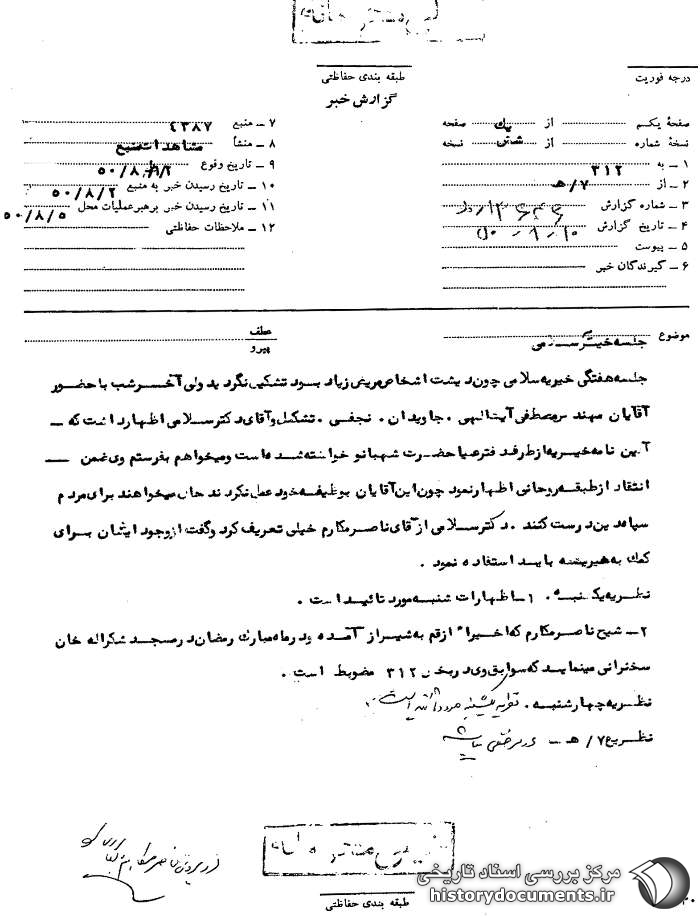 طبقه بندی حفاظتی
درجه فوریت
گزارش خبر
صفحهٔ یکم از یک صفحه
نسخهٔ شماره از شش نسخه
۱ ـ به ۳۱۲
۲ ـ از ۷/هـ
۳ ـ شماره گزارش
۴ ـ تاریخ گزارش
۵ ـ پیوست
۶ ـ گیرندگان خبر
۷ ـ منبع ٤۳۸۷
۸ ـ منشأ مشاهدات منبع
۹ ـ تاریخ وقوع
۱۰ ـ تاریخ رسیدن خبر به منبع ۵۰/۸/۲
۱۱ ـ تاریخ رسیدن خبر برهبرعملیات محل ۵۰/۸/۵
۱۲ ـ ملاحظات حفاظتی
موضوع جلسه خیریه سلامی
عطف
پیرو
جلسه هفتگی خیریه سلامی چون دیشب اشخاص مریض زیاد بود تشکیل نگردید ولی آخر شب با حضور
آقایان مهندس مصطفی آیت‌الهی . جاویدان . نجفی . تشکیل و آقای دکتر سلامی اظهار داشت که ـ
آئین نامه خیریه از طرف دفتر علیاحضرت شهبانو خواسته شده است و میخواهم بفرستم وی ضمن ـ
انتقاد از طبقه روحانی اظهار نمود چون این آقایان بوظیفه خود عمل نکردند حال میخواهند برای مردم
سپاه دین درست کنند . دکتر سلامی از آقای ناصر مکارم خیلی تعریف کرد و گفت از وجود ایشان برای
کمک به خیریه باید استفاده نمود .
نظریه یکشنبه . ۱ ـ اظهارات شنبه مورد تائید است .
۲ ـ شیخ ناصر مکارم که اخیراً از قم به شیراز آمده و در ماه مبارک رمضان در مسجد شکراله خان
سخنرانی مینماید که سوابق وی در بخش ۳۱۲ مضبوط است .
نظریه چهارشنبه . نظریه یکشنبه مورد تائید است .
نظریه ۷/هـ ـ
طبقه بندی حفاظتی
مرکز بررسی اسناد تاریخی
historydocuments.ir